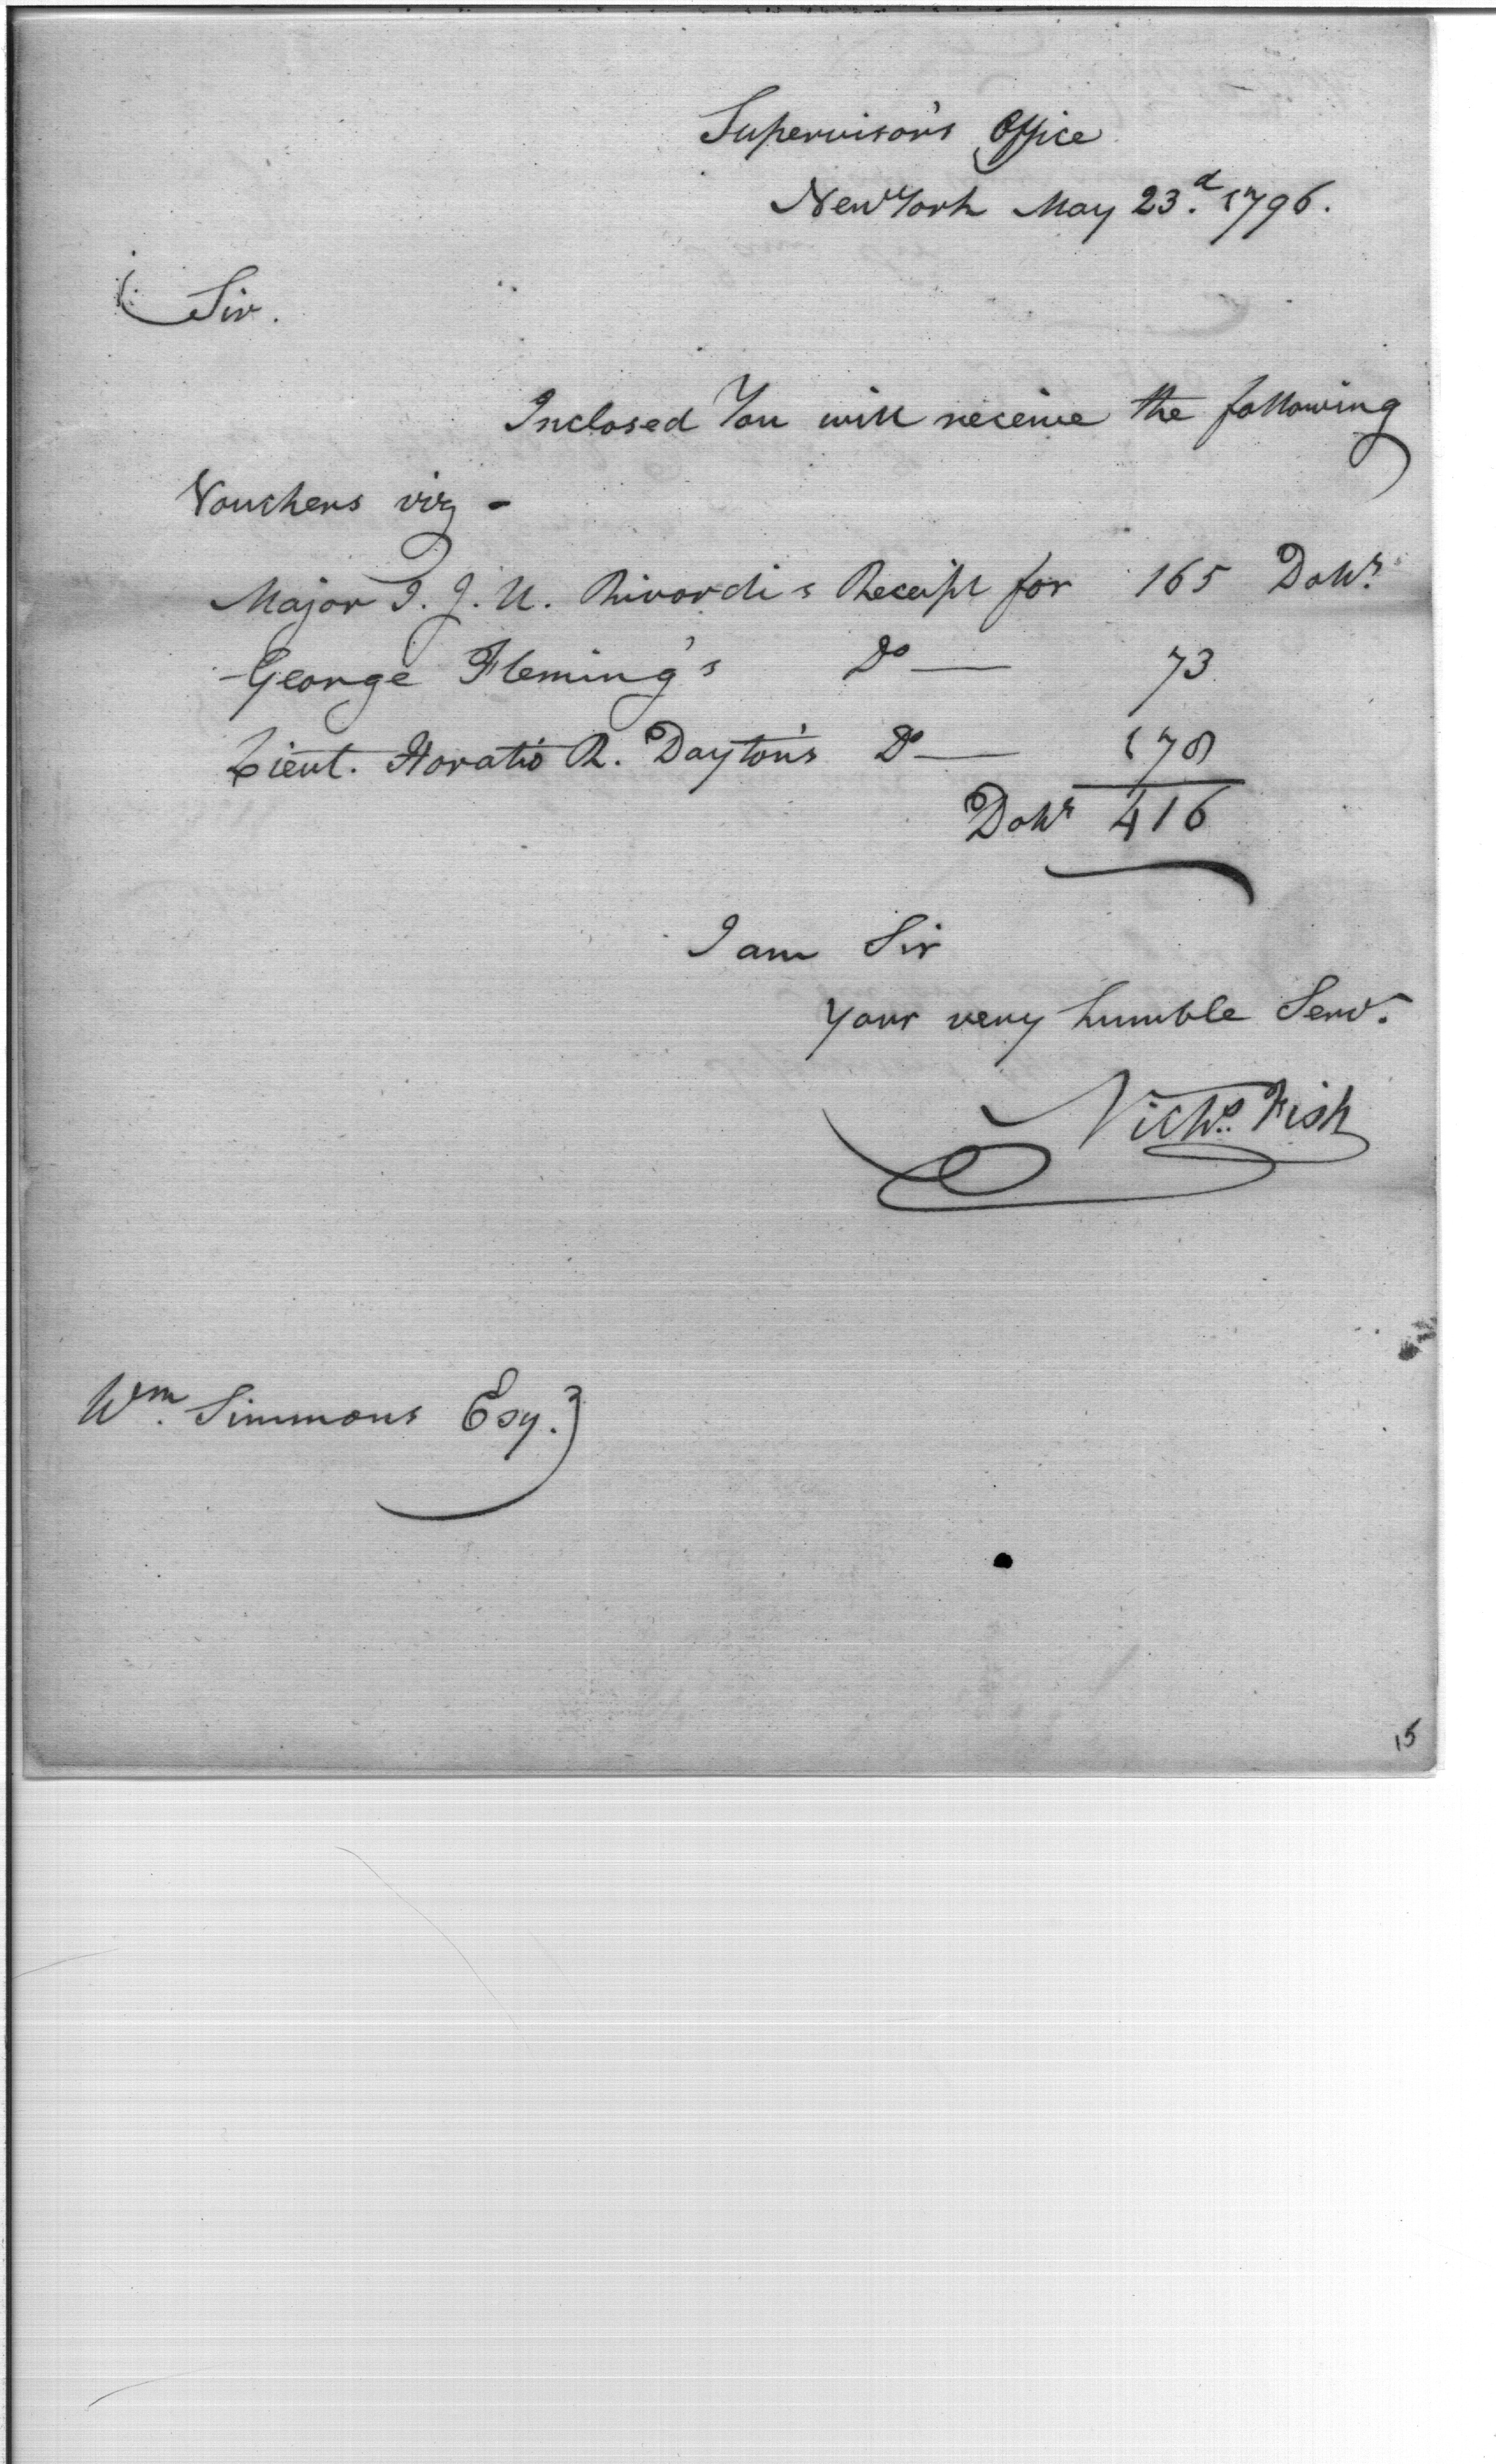 Supervisor's Office
New York May 23.d 1796.
Sir.
Inclosed You will receive the following
Vouchers viz -
Major I. J. U. Rivardi s Receipt for 165 Dollrs.
George Fleming's Do — 73
Lieut. Horatio R. Dayton's Do — 178
Dollrs 416
I am Sir
your very humble Servt.
Nichs. Fish
Wm. Simmons Esq.
15